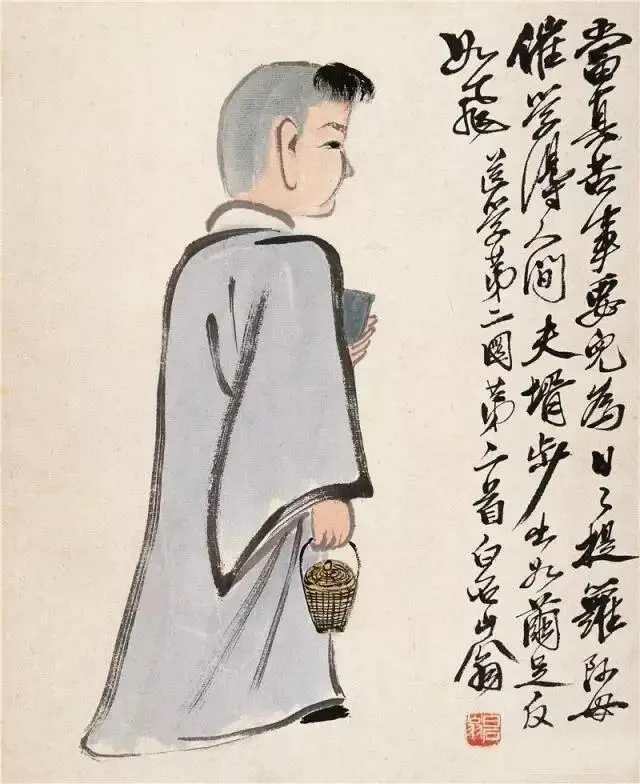 當真苦事要兒為日〻提籮阿母
催学得人間夫壻步出如繭足反
如飛 送学第二圖第二首白石山翁
白石翁